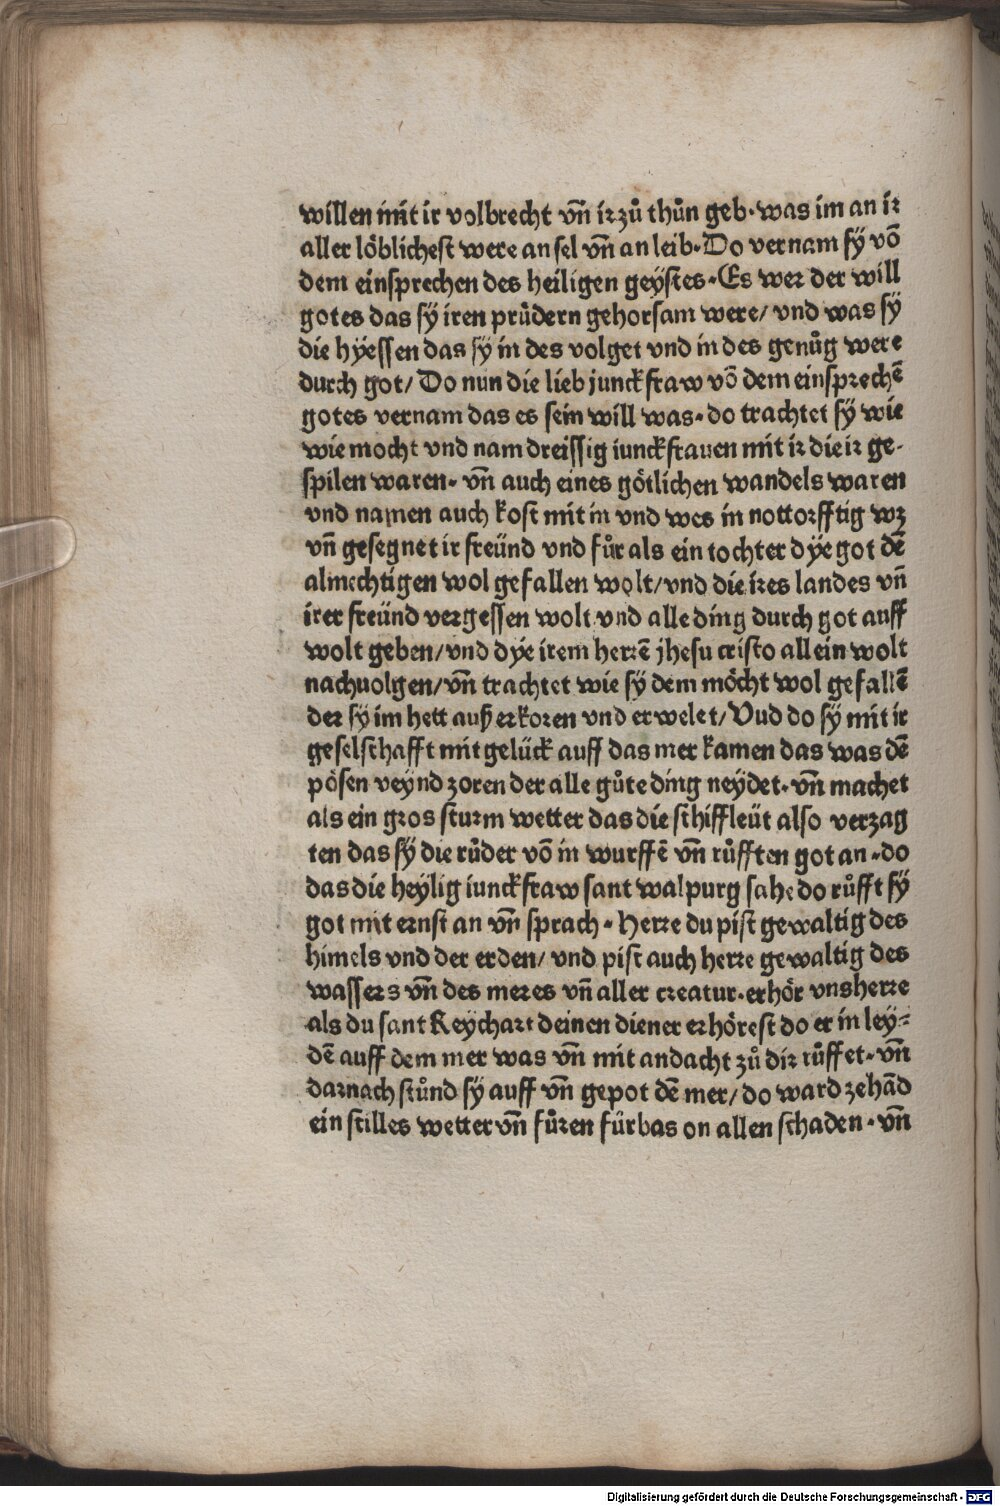 willen mit ir volbrecht vn̄ ir zů thůn geb·was im an ir
aller löblichest were an sel vn̄ an leib·Do vernam sÿ vō
dem einsprechen des heiligen geÿstes·Es wer der will
gotes das sÿ iren průdern gehorsam were/ vnd was sÿ
die hÿessen das sÿ in des volget vnd in des genůg were
durch got/ Do nun die lieb junckfraw vō dem einsprechē
gotes vernam das es sein will was·do trachtet sÿ wie
wie mocht vnd nam dreissig iunckfrauen mit ir die ir ge-
spilen waren· vn̄ auch eines götlichen wandels waren
vnd namen auch kost mit in vnd wes in nottorfftig wz
vn̄ gesegnet ir freünd vnd fůr als ein tochter dÿe got dē
almechtigen wol gefallen wolt/vnd die ires landes vn̄
irer freünd vergessen wolt vnd alle ding durch got auff
wolt geben/vnd dÿe irem herrē jhesu cristo allein wolt
nachuolgen/vn̄ trachtet wie sÿ dem möcht wol gefallē
der sÿ im hett auß erkoren vnd erwelet/Vud do sÿ mit ir
geselschafft mit gelück auff das mer kamen das was dē
pösen veÿnd zoren der alle gůte ding neÿdet·vn̄ machet
als ein gros sturm wetter das die schiffleüt also verzag
ten das sÿ die růder vō in wurffē vn̄ růfften got an·do
das die heÿlig iunckfraw sant walpurg sahe do růfft sÿ
got mit ernst an vn̄ sprach·Herre du pist gewaltig des
himels vnd der erden/ vnd pist auch herre gewaltig des
wassers vn̄ des meres vn̄ aller creatur·erhör vnsherre
als du sant Reÿchart deinen diener erhörest do er in leÿ-
dē auff dem mer was vn̄ mit andacht zů dir růffet·vn̄
darnach stůnd sÿ auff vn̄ gepot dē mer/do ward zehād
ein stilles wetter vn̄ fůren fürbas on allen schaden·vn̄
Digitalisierung gefördert durch die Deutsche Forschungsgemeinschaft - DFG